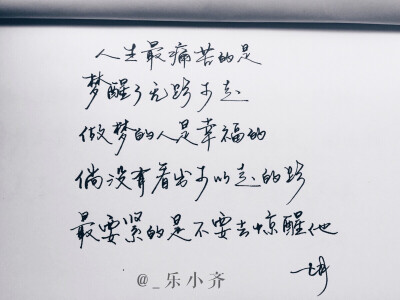 人生最痛苦的是
梦醒了无路可走
做梦的人是幸福的
倘没有看出可以走的路
最要紧的是不要去惊醒他
@_乐小齐